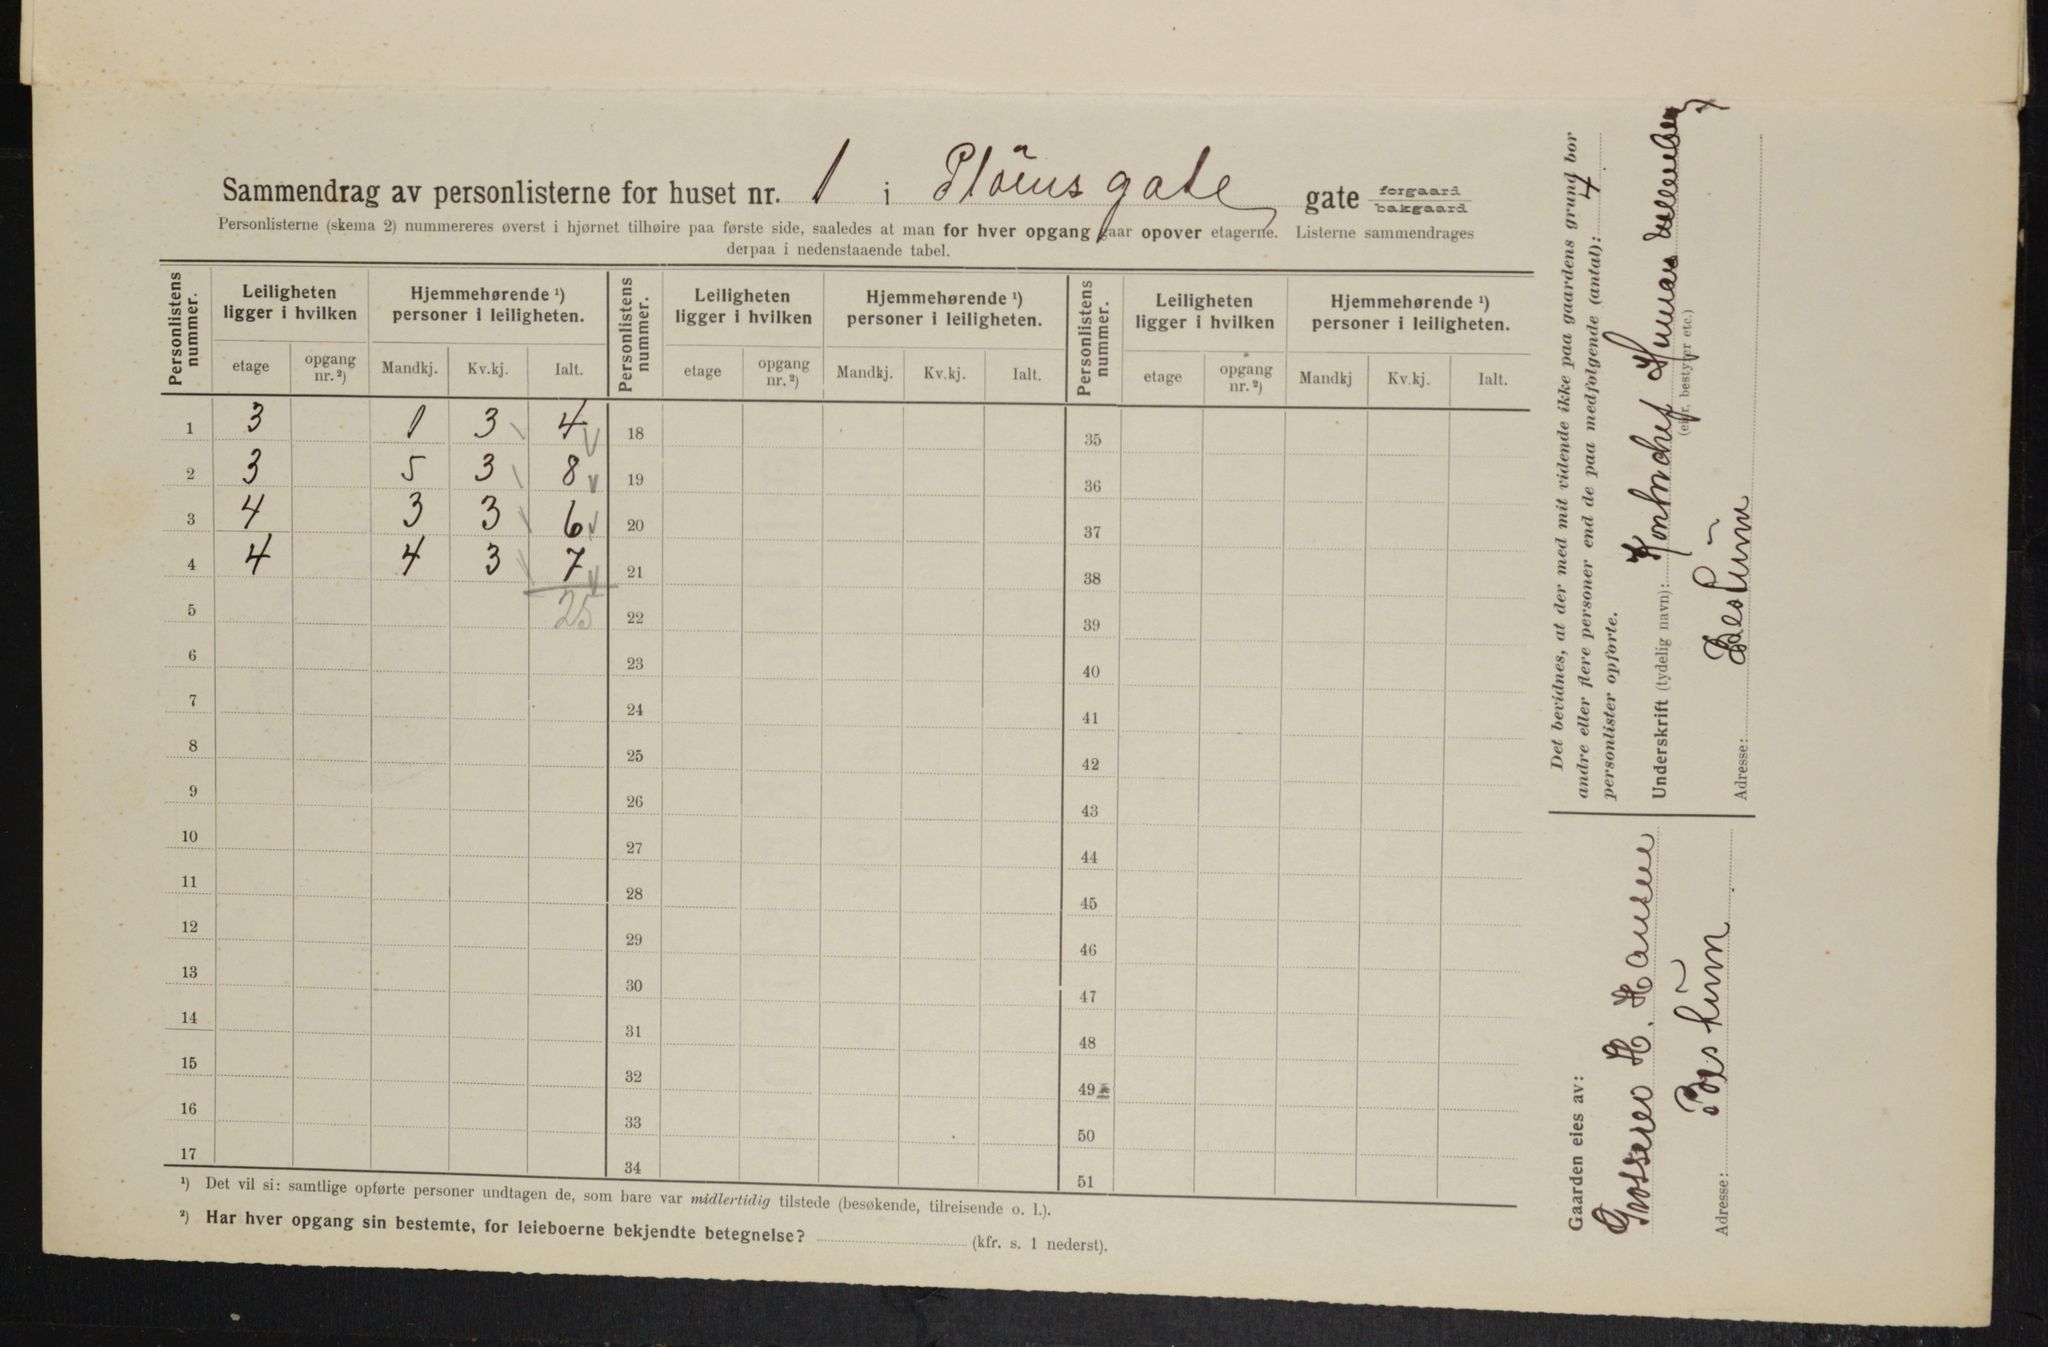 Sammendrag av personlisterne for huset nr. 1 i Plöensgate gate forgaard bakgaard
Personlisterne (skema 2) nummereres øverst i hjørnet tilhøire paa første side, saaledes at man for hver opgang gaar opover etagerne. Listerne sammendrages
derpaa i nedenstaaende tabel.
Personlistens nummer. Leiligheten ligger i hvilken Hjemmehørende ¹) personer i leiligheten. Personlistens nummer. Leiligheten ligger i hvilken Hjemmehørende ¹) personer i leiligheten. Personlistens nummer. Leiligheten ligger i hvilken Hjemmehørende ¹) personer i leiligheten.
etage opgang nr. ²) Mandkj. Kv.kj. Ialt. etage opgang nr. ²) Mandkj. Kv.kj. Ialt. etage opgang nr. ²) Mandkj Kv.kj. Ialt.
1 3 1 3 4 18 35
2 3 5 3 8 19 36
3 4 3 3 6 20 37
4 4 4 3 7 21 38
5 25 22 39
6 23 40
7 24 41
8 25 42
9 26 43
10 27 44
11 28 45
12 29 46
13 30 47
14 31 48
15 32 49
16 33 50
17 34 51
¹) Det vil si: samtlige opførte personer undtagen de, som bare var midlertidig tilstede (besøkende, tilreisende o. l.).
²) Har hver opgang sin bestemte, for leieboerne bekjendte betegnelse? (kfr. s. 1 nederst).
Det bevidnes, at der med mit vidende ikke paa gaardens grund bor
andre eller flere personer end de paa medfølgende (antal): 4
personlister opførte.
Underskrift (tydelig navn): Kontorchef Herman
(eier, bestyrer etc.)
Adresse:
Gaarden eies av:
Grosserer H. Hansen
Adresse: